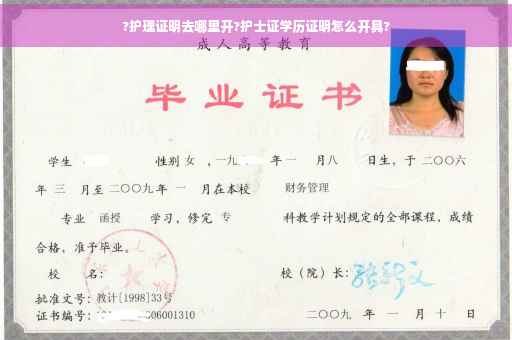 ?护理证明去哪里开?护士证学历证明怎么开具?
成人高等教育
毕业证书
学生 性别 女 , 一九 年 一 月八 日生，于 二〇〇六
年 三 月至 二〇〇九 年 一 月在本校 财务管理
专业 函授 学习，修完 专 科教学计划规定的全部课程，成绩
合格，准予毕业。
校 名： 校（院）长：
批准文号：教计[1998]33号
证书编号： 06001310 二〇〇九 年 一 月 十 日